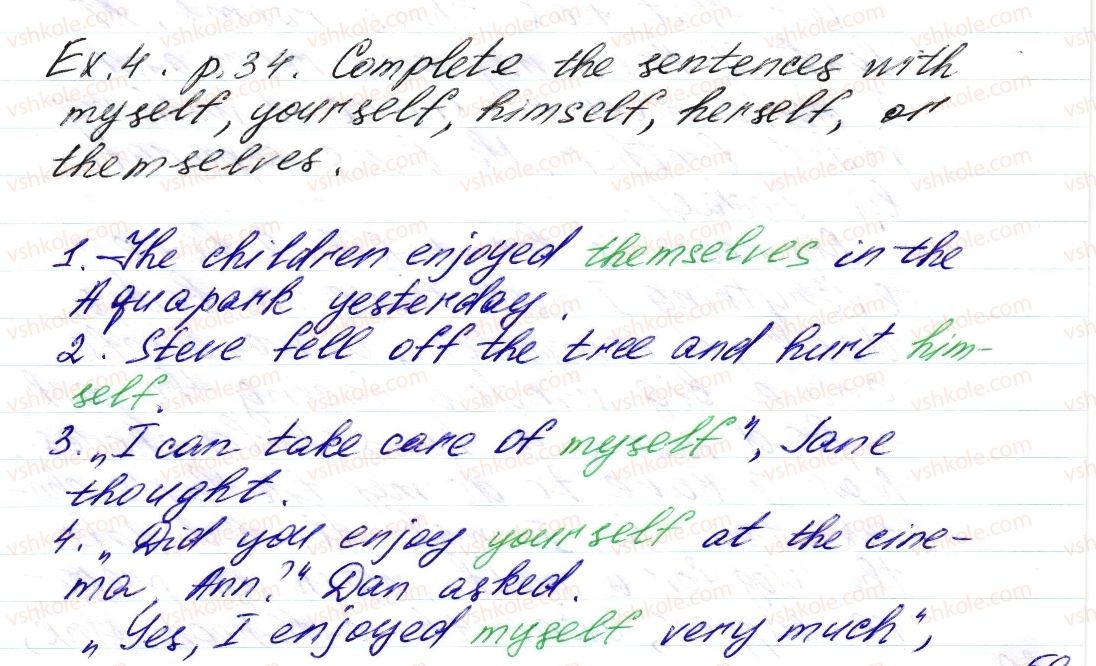 Ex.4. p.34. Complete the sentences with
myself, yourself, himself, herself, or
themselves.
1. The children enjoyed themselves in the
Aquapark yesterday.
2. Steve fell off the tree and hurt him-
self.
3. „I can take care of myself", Jane
thought.
4. „Did you enjoy yourself at the cine-
ma, Ann?" Dan asked.
„Yes, I enjoyed myself very much",